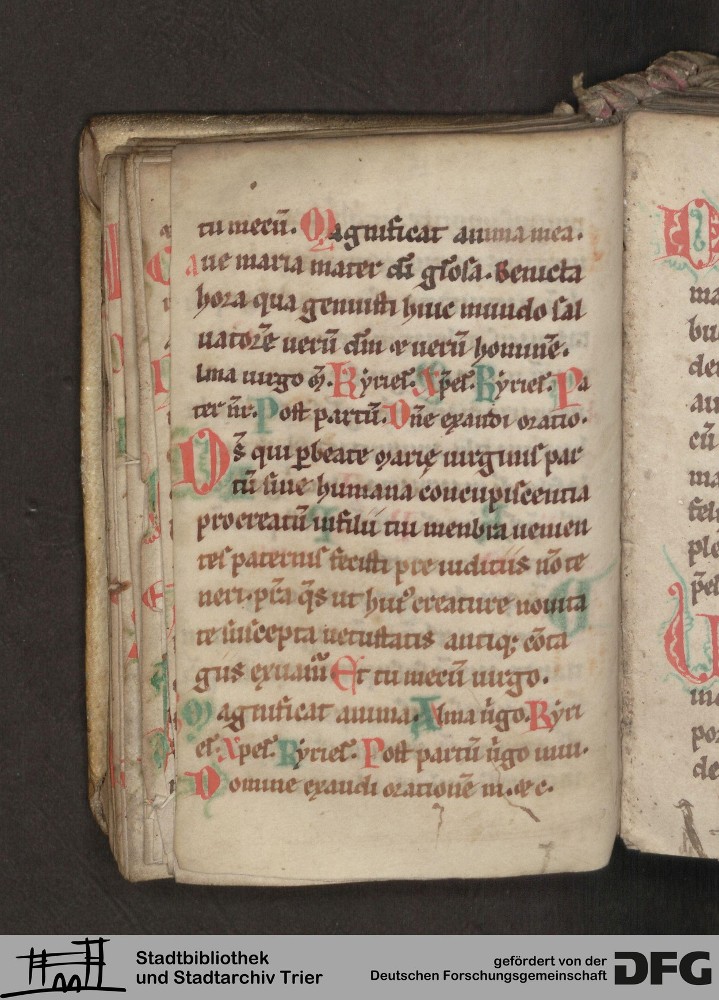 tu mecū. Magnificat anima mea.
aue maria mater dn̄i gl̄osa. Benicta
hora qua genuisti huic mundo sal
uatorē uerū dm̄ ⁊ uerū hominē.
lma uirgo q̄. Kyriel̄. Xp̄el̄. Kyriel̄. Pa
ter nr̄. Post partū. Dn̄e exaudi oratio.
Ds̄ qui p̄beate marię uirginis par
tū sine humana concupiscentia
procreatū in filii tui menbra uenien
tes paternis fecisti pre iuditiis nō te
neri. pr̄a q̄s ut hui᷒ creature nouita
te suscepta uetustatis antiq; cōta
giis exuam̄ Et tu mecū uirgo.
Magnificat anima. Alma ūgo. Kyri
el̄. Xpel̄. Kyriel̄. Post partū ūgo inui.
Domine exaudi orationē m. ⁊ c.
Stadtbibliothek
und Stadtarchiv Trier
gefördert von der
Deutschen Forschungsgemeinschaft DFG